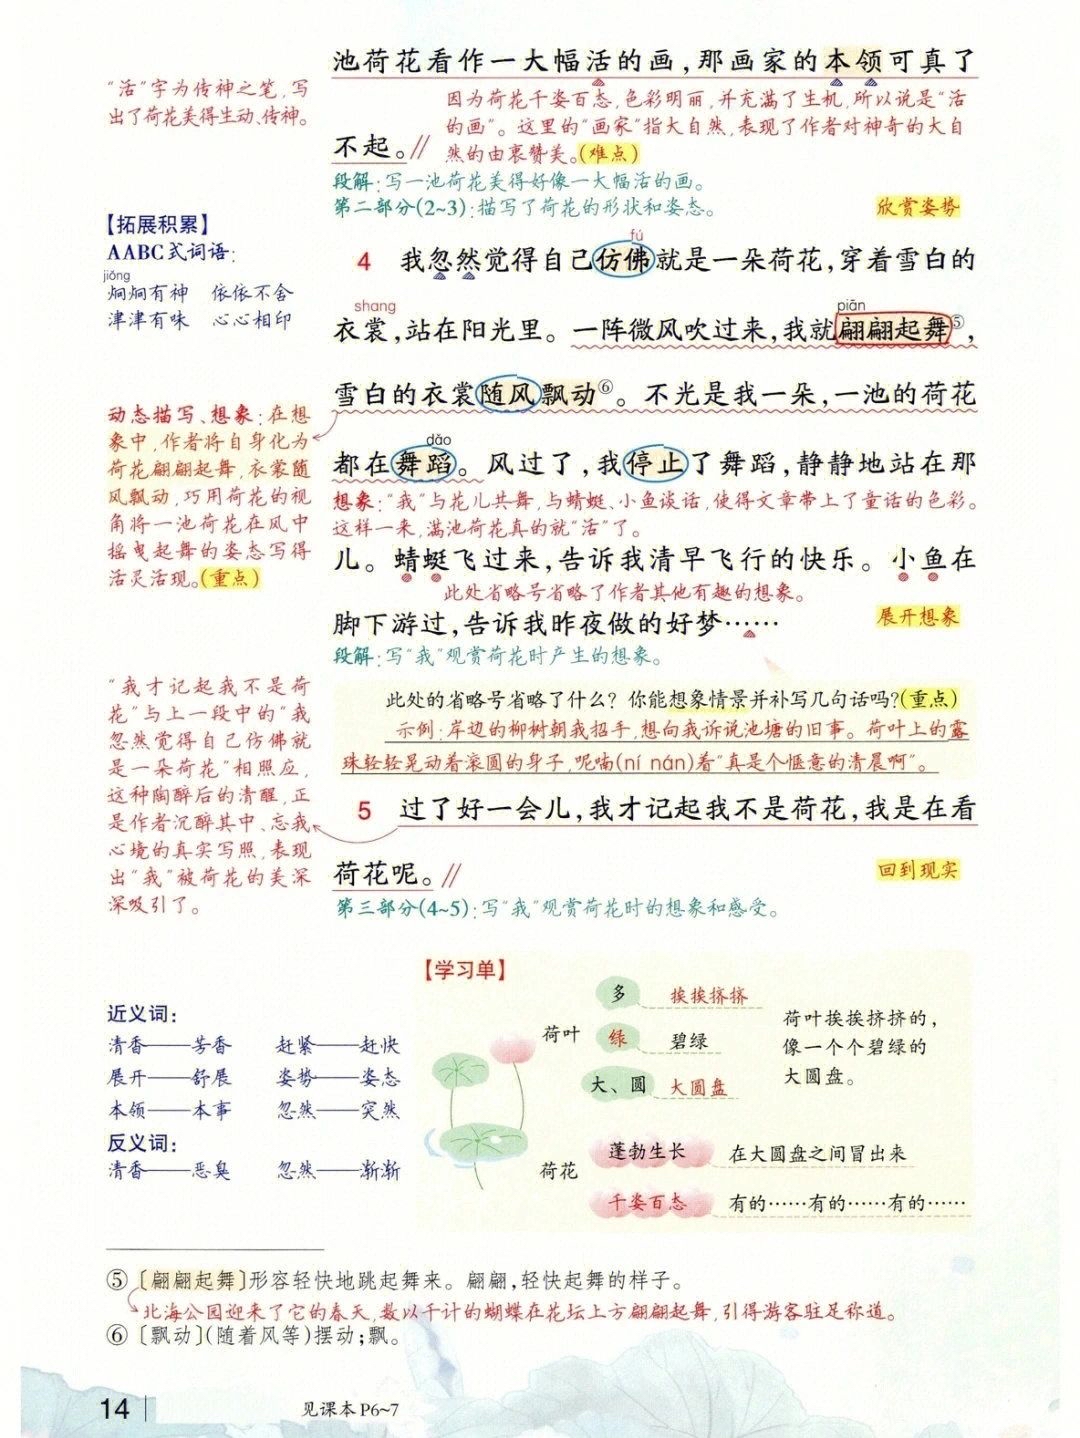 池荷花看作一大幅活的画，那画家的本领可真了
“活”字为传神之笔，写
出了荷花美得生动、传神。
因为荷花千姿百态，色彩明丽，并充满了生机，所以说是“活
的画”。这里的“画家”指大自然，表现了作者对神奇的大自
不起。//
然的由衷赞美。(难点)
段解：写一池荷花美得好像一大幅活的画。
第二部分(2~3)：描写了荷花的形状和姿态。
欣赏姿势
【拓展积累】
AABC式词语：
jiǒng
炯炯有神 依依不舍
津津有味 心心相印
fú
4 我忽然觉得自己仿佛就是一朵荷花，穿着雪白的
shang piān
衣裳，站在阳光里。一阵微风吹过来，我就翩翩起舞⑤，
雪白的衣裳随风飘动⑥。不光是我一朵，一池的荷花
dǎo
都在舞蹈。风过了，我停止了舞蹈，静静地站在那
动态描写、想象：在想
象中，作者将自身化为
荷花翩翩起舞，衣裳随
风飘动，巧用荷花的视
角将一池荷花在风中
摇曳起舞的姿态写得
活灵活现。(重点)
想象：“我”与花儿共舞，与蜻蜓、小鱼谈话，使得文章带上了童话的色彩。
这样一来，满池荷花真的就“活”了。
儿。蜻蜓飞过来，告诉我清早飞行的快乐。小鱼在
此处省略号省略了作者其他有趣的想象。
脚下游过，告诉我昨夜做的好梦……
展开想象
段解：写“我”观赏荷花时产生的想象。
此处的省略号省略了什么？你能想象情景并补写几句话吗？(重点)
示例：岸边的柳树朝我招手，想向我诉说池塘的旧事。荷叶上的露
珠轻轻晃动着滚圆的身子，呢喃(ní nán)着“真是个惬意的清晨啊”。
“我才记起我不是荷
花”与上一段中的“我
忽然觉得自己仿佛就
是一朵荷花”相照应，
这种陶醉后的清醒，正
是作者沉醉其中、忘我
心境的真实写照，表现
出“我”被荷花的美深
深吸引了。
5 过了好一会儿，我才记起我不是荷花，我是在看
荷花呢。//
回到现实
第三部分(4~5)：写“我”观赏荷花时的想象和感受。
近义词：
清香——芳香 赶紧——赶快
展开——舒展 姿势——姿态
本领——本事 忽然——突然
反义词：
清香——恶臭 忽然——渐渐
【学习单】
荷叶
多 挨挨挤挤
绿 碧绿
大、圆 大圆盘
荷叶挨挨挤挤的，
像一个个碧绿的
大圆盘。
荷花
蓬勃生长 在大圆盘之间冒出来
千姿百态 有的……有的……有的……
⑤〔翩翩起舞〕形容轻快地跳起舞来。翩翩，轻快起舞的样子。
北海公园迎来了它的春天，数以千计的蝴蝶在花坛上方翩翩起舞，引得游客驻足称道。
⑥〔飘动〕(随着风等)摆动；飘。
14
见课本 P6~7